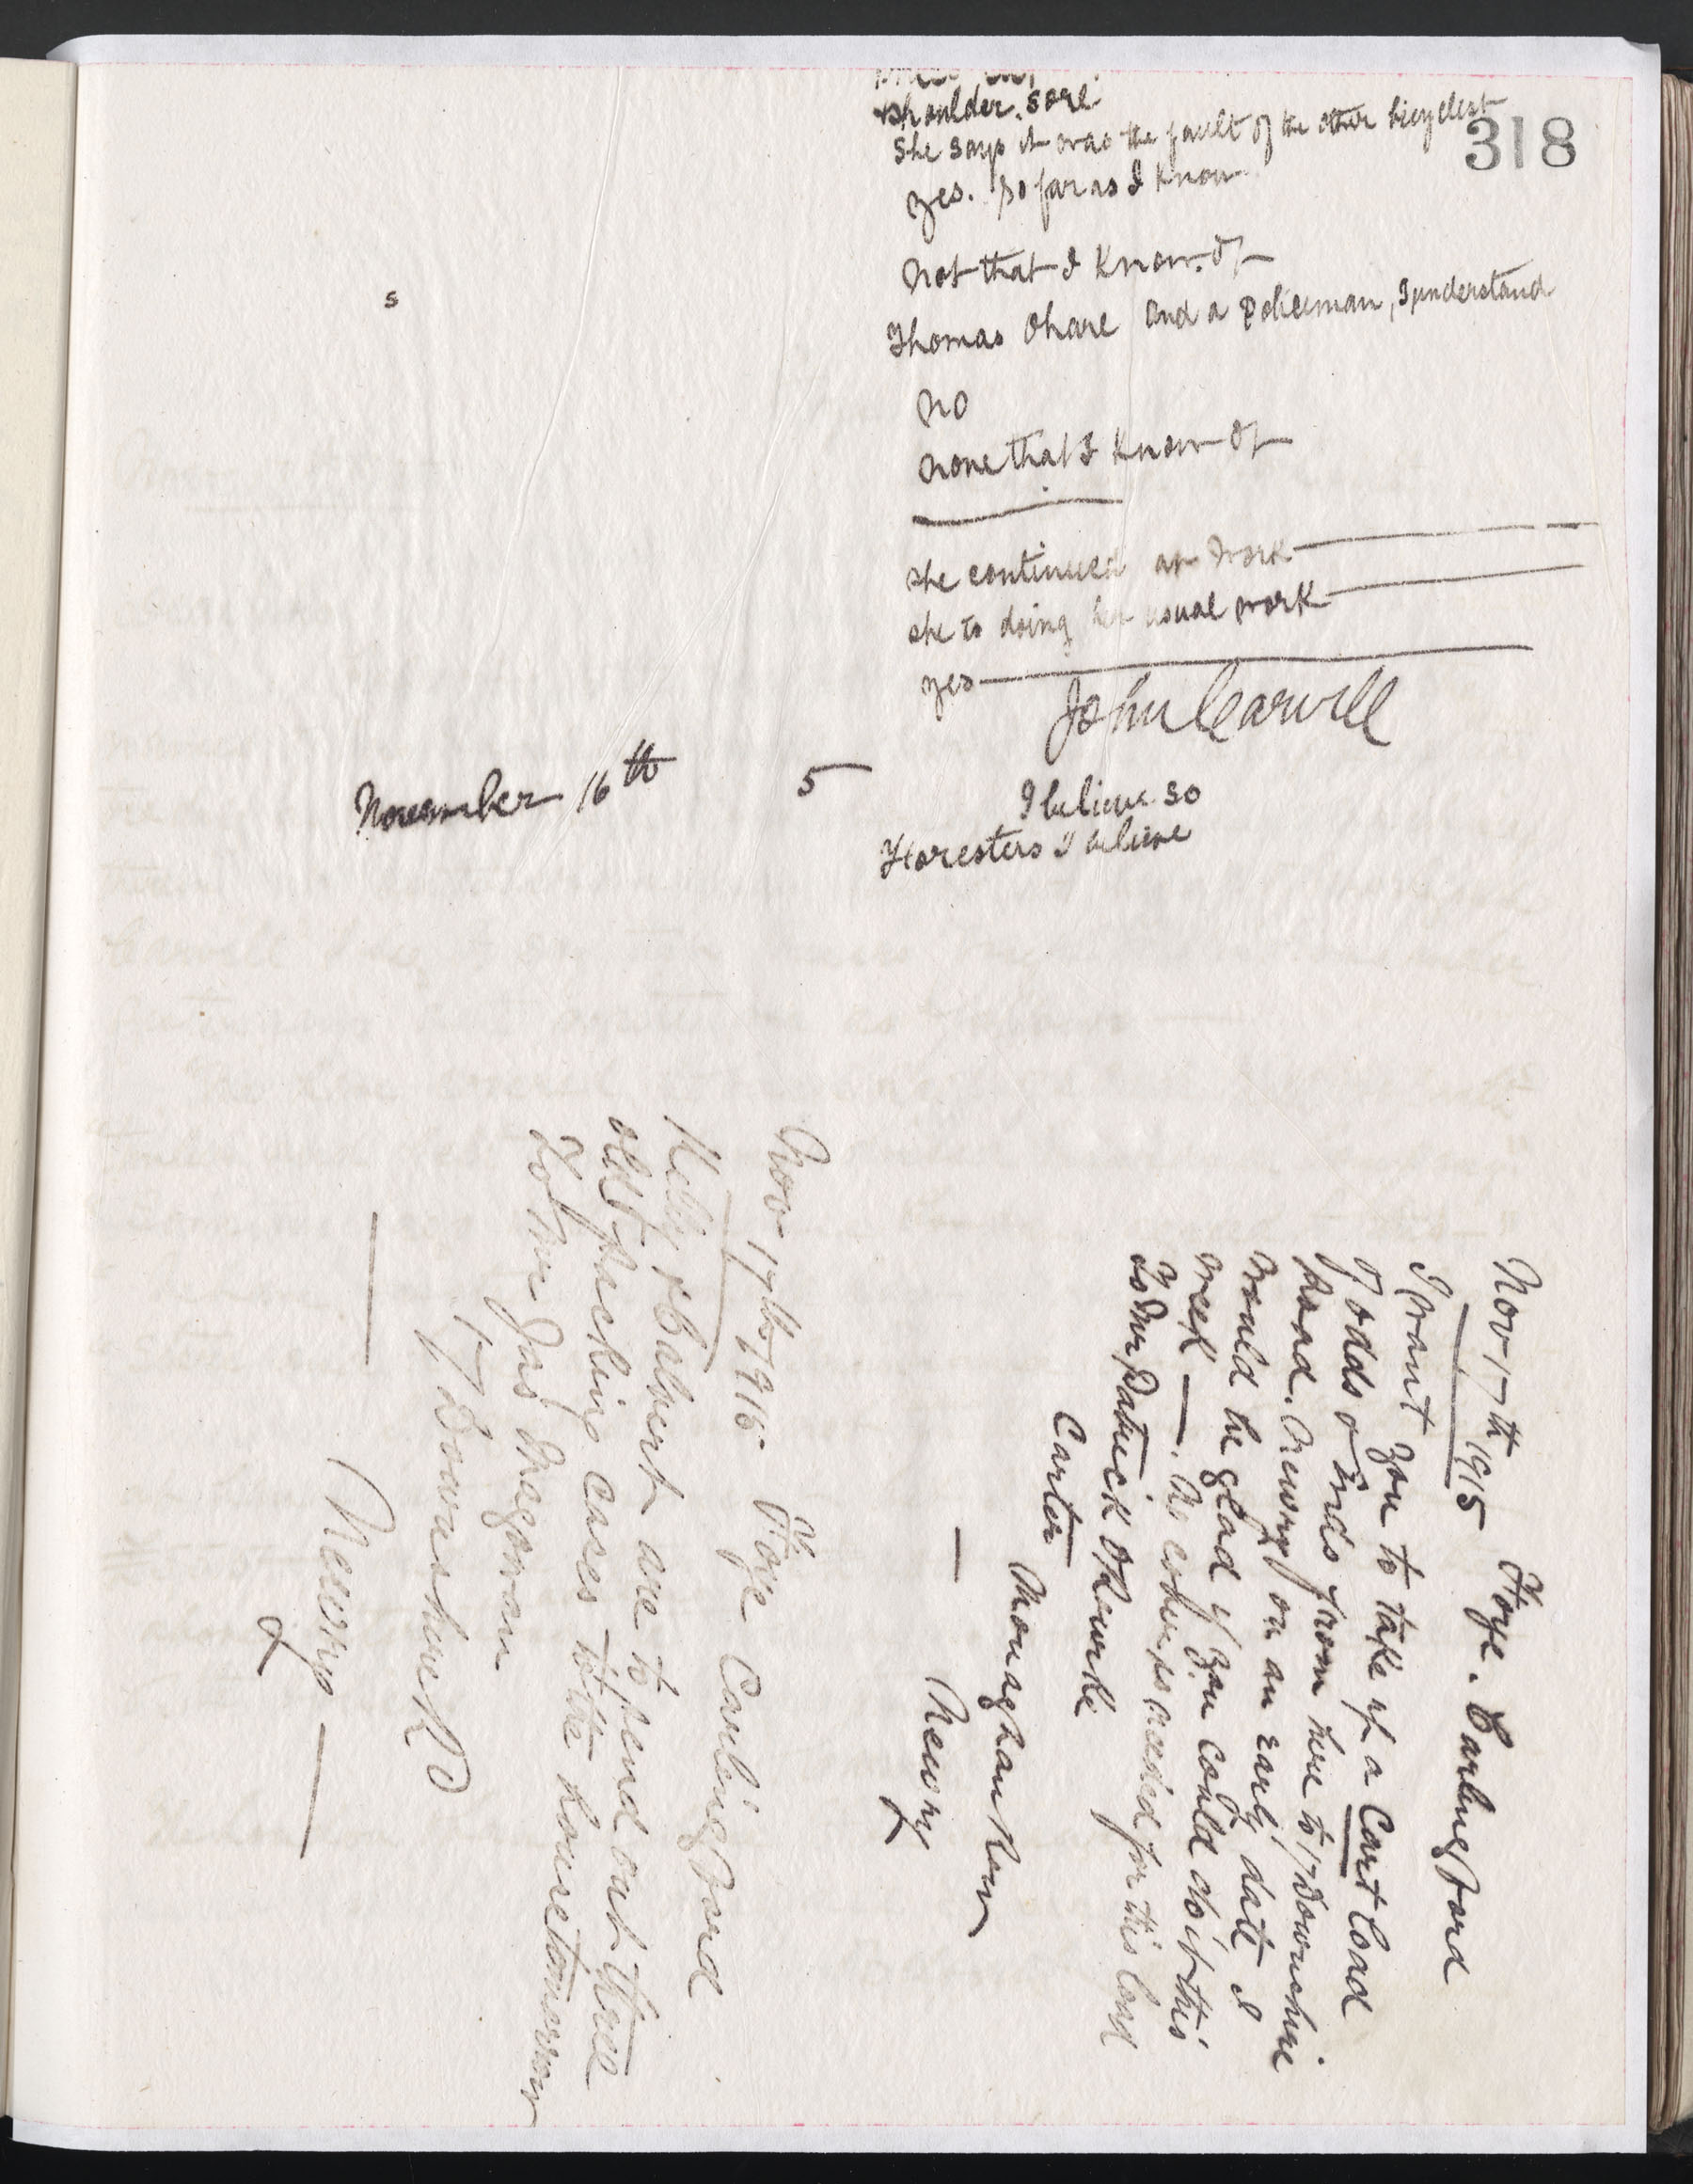 318
shoulder sore
She says it was the fault of the other bicyclest
yes. so far as I know
not that I know of
s
Thomas Ohare and a Policeman, I understand
no
none that I know of
she continued at work
she is doing her usual work
yes
John Carvill
November 16th 5
I believe so
Foresters I believe
Nov 17th 1915 Foye. Carlingford
I want you to take up a Cart load
of odds & ends from here to 17 Downshire
Road. Newry on an early date I
would be glad if you could do it this
week — . No cover is needed for this load
To Mr Patrick ORourke
Carter
Monaghan Row
Newry
Nov 17th 1915 Foye Carlingford
Kelly & Calvert are to send out three
old packing cases to the house tomorrow
To Mr Jas Magowan
17 Downshire Rd
Newry